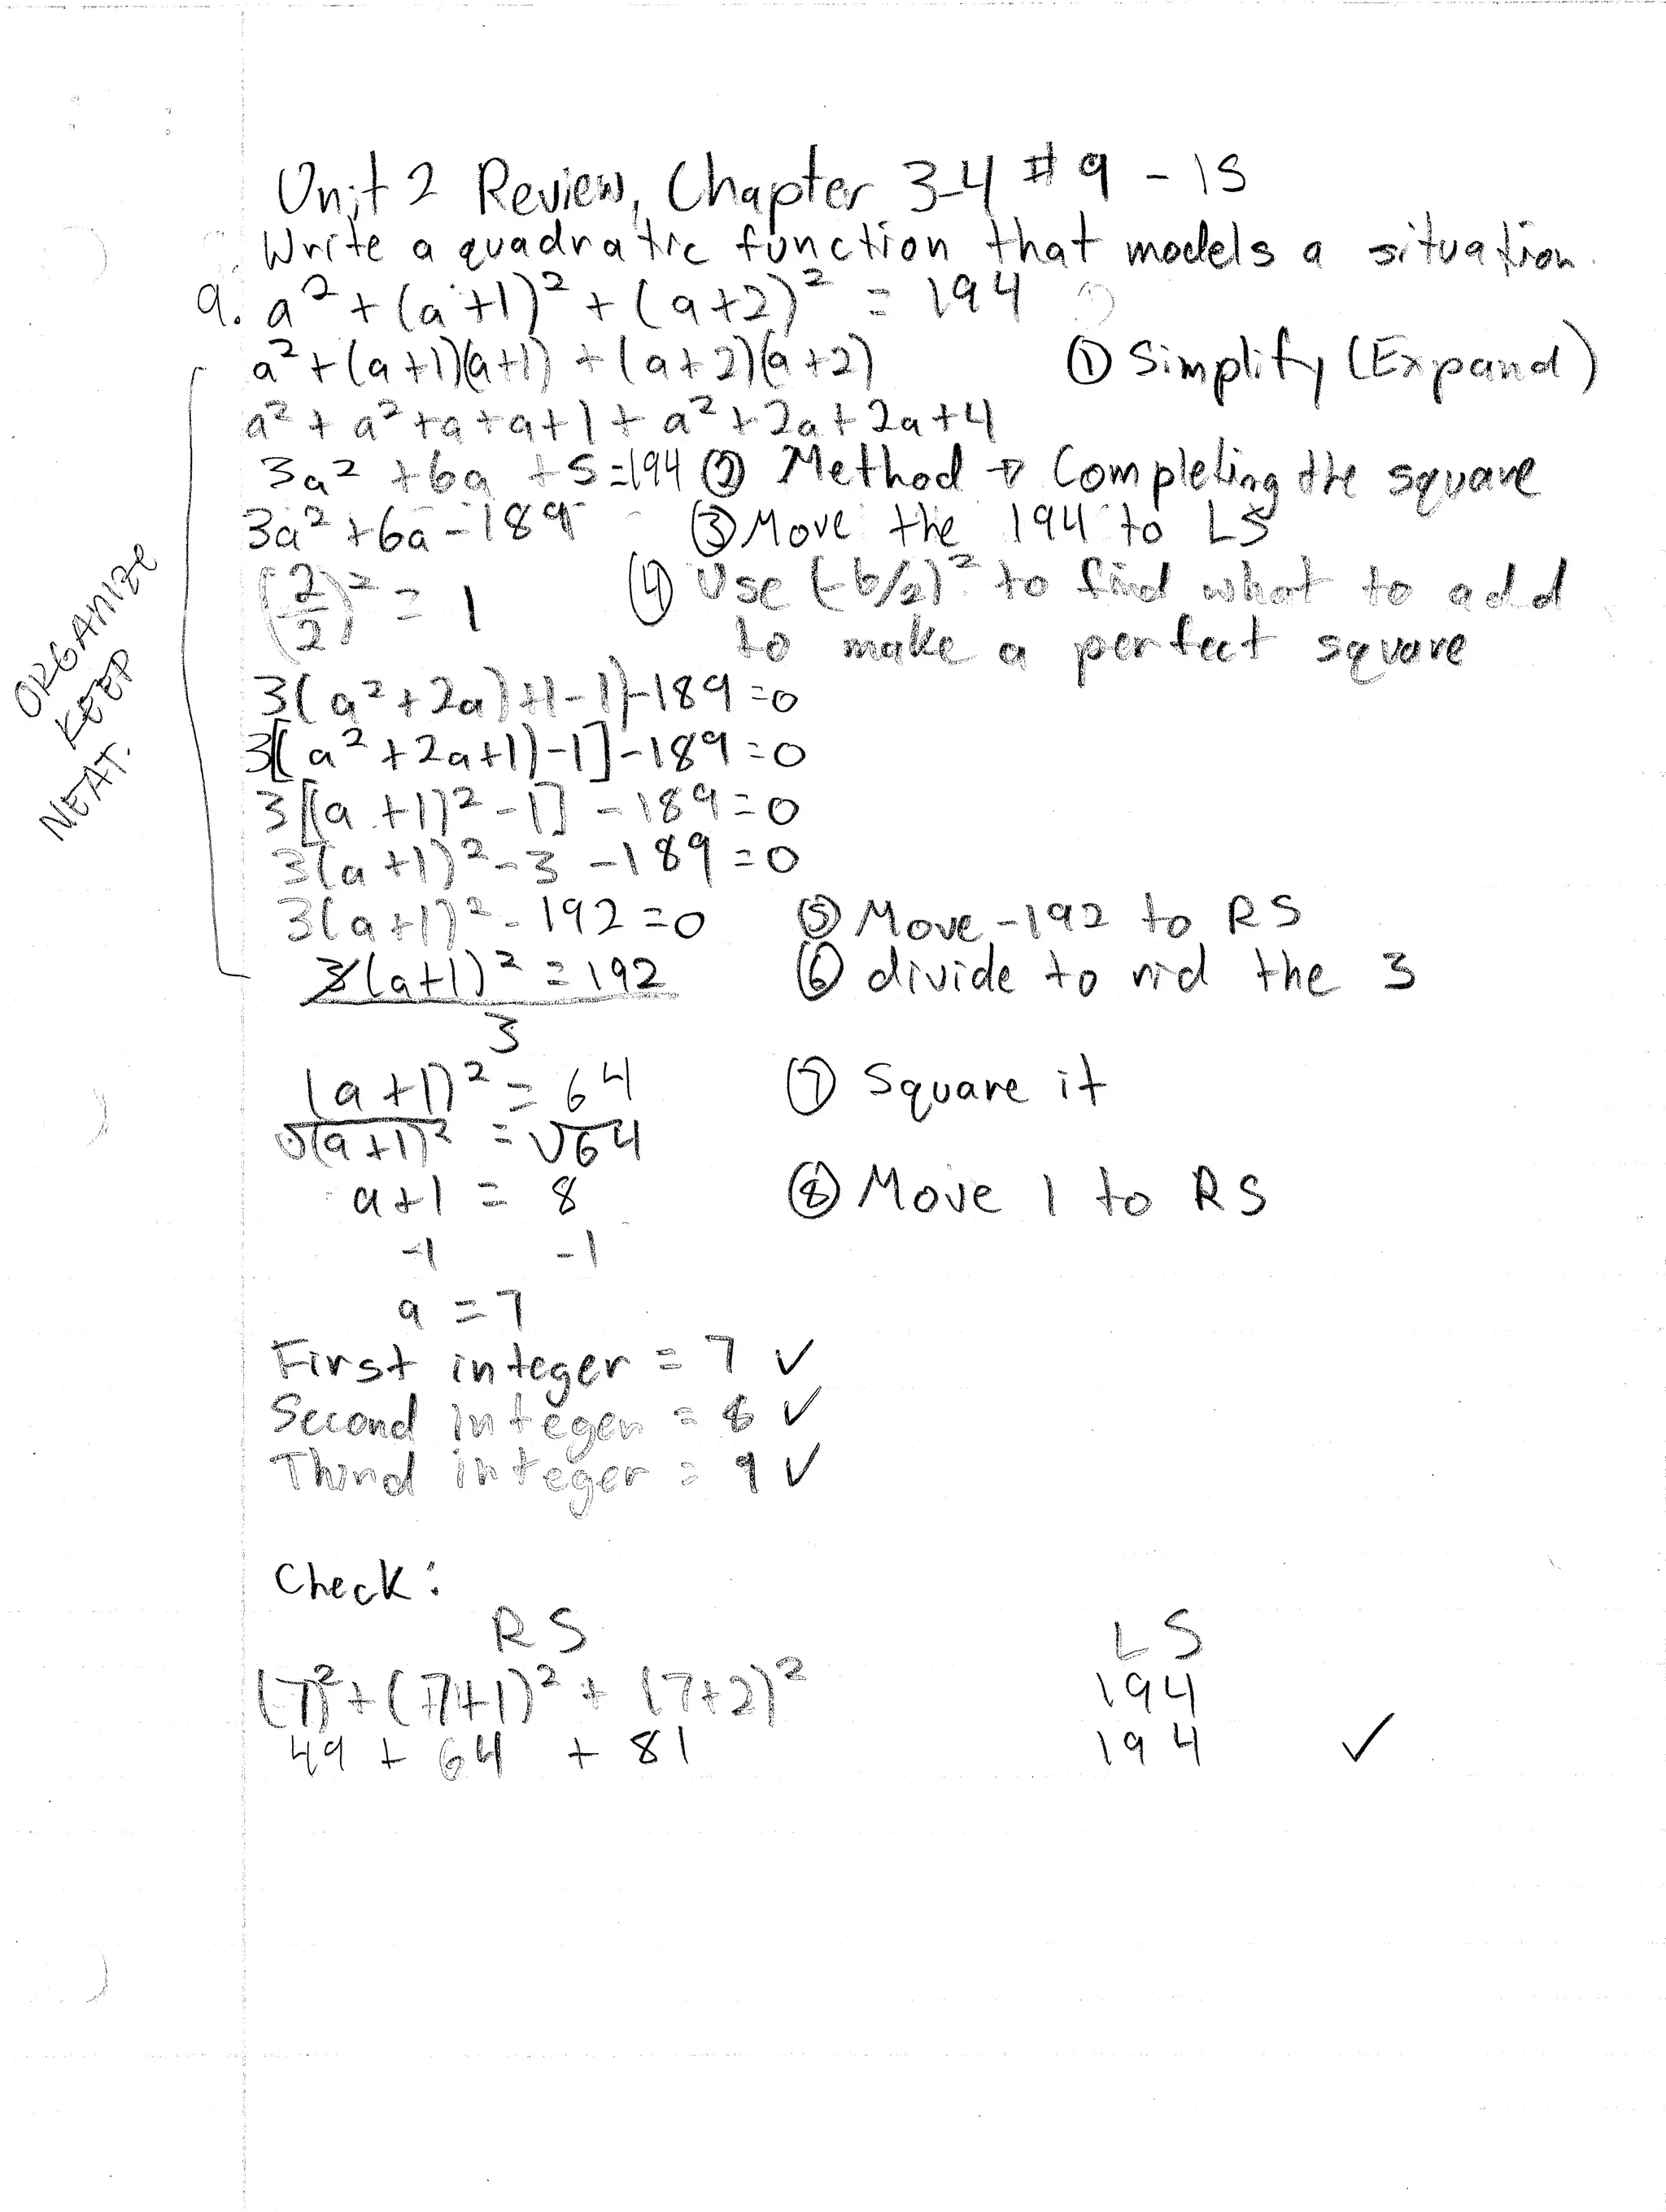 Unit 2 Review, Chapter 3-4 # 9 - 15
Write a quadratic function that models a situation.
9. a² + (a+1)² + (a+2)² = 194
a² + (a+1)(a+1) + (a+2)(a+2) ① Simplify (Expand)
a² + a² + a + a + 1 + a² + 2a + 2a + 4
3a² + 6a + 5 = 194 ② Method → Completing the square
3a² + 6a - 189 ③ Move the 194 to LS
(2/2)² = 1 ④ Use (-b/2)² to find what to add
to make a perfect square
ORGANIZE
KEEP
NEAT.
3(a² + 2a) + 1 - 1) - 189 = 0
3[(a² + 2a + 1) - 1] - 189 = 0
3[(a + 1)² - 1] - 189 = 0
3(a + 1)² - 3 - 189 = 0
3(a + 1)² - 192 = 0 ⑤ Move -192 to RS
3(a+1)² = 192 ⑥ divide to rid the 3
3
(a + 1)² = 64 ⑦ Square it
√(a + 1)² = √64
a + 1 = 8 ⑧ Move 1 to RS
-1 -1
a = 7
First integer = 7 ✓
Second integer = 8 ✓
Third integer = 9 ✓
Check:
RS LS
(7)² + (7+1)² + (7+2)² 194
49 + 64 + 81 194 ✓